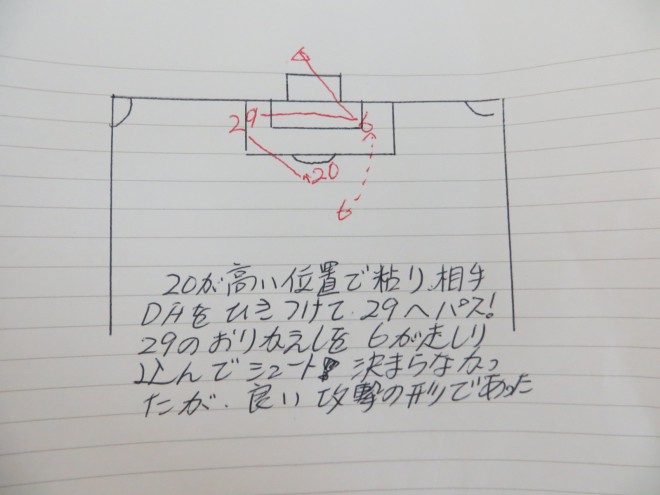 29
6
20
6
20が高い位置で粘り、相手
DFをひきつけて、29へパス!
29のおりかえしを6が走り
込んでシュート! 決まらなかっ
たが、良い攻撃の形であった